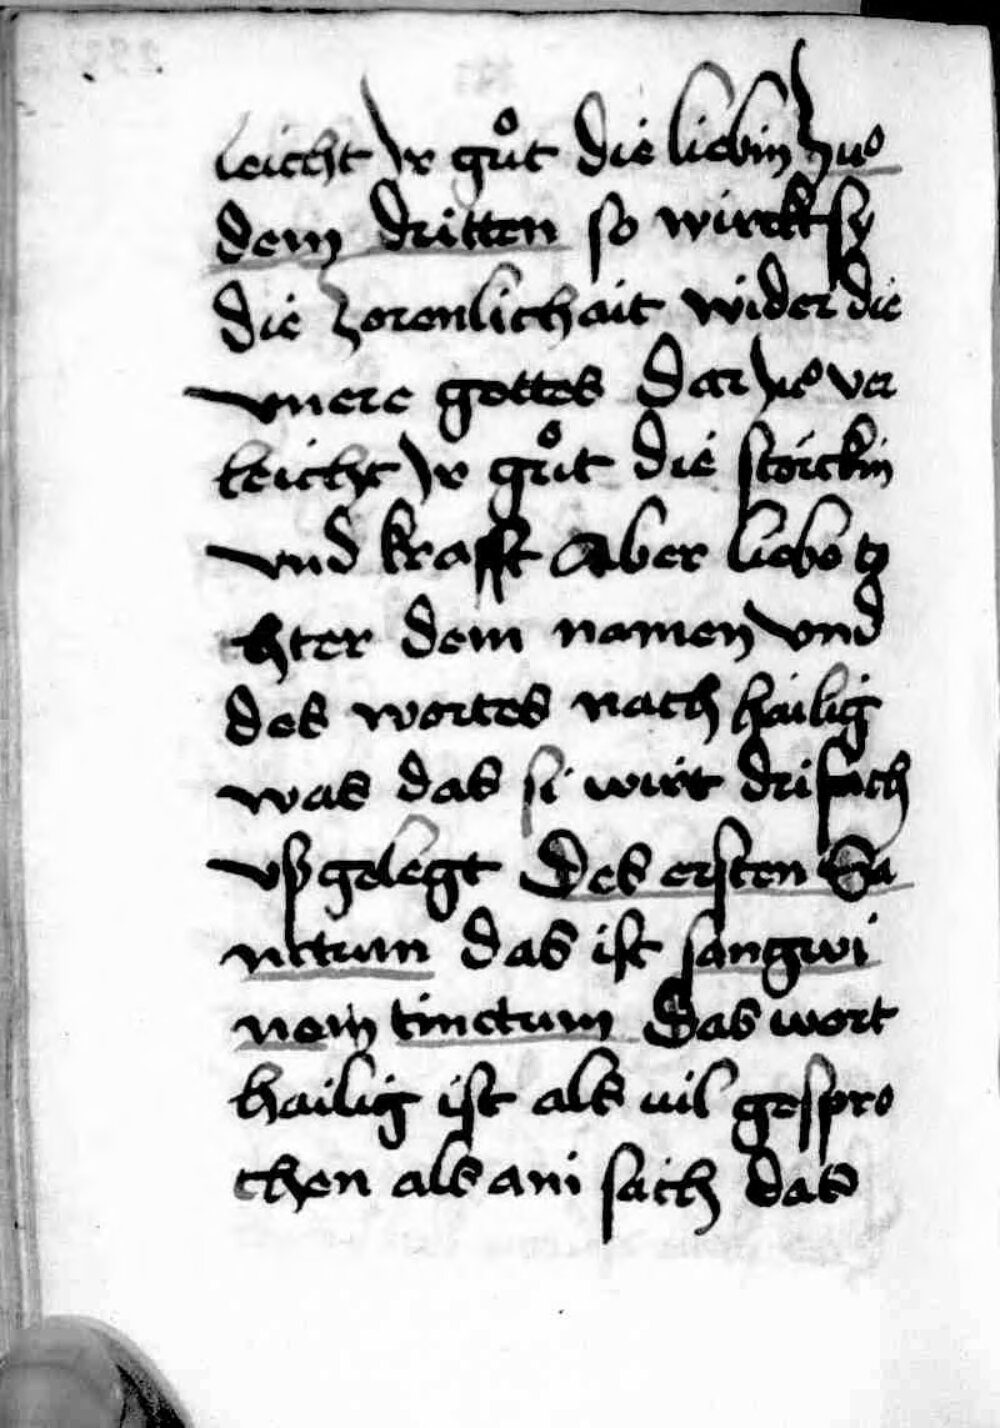 leicht ir gůt die liebin zuo
dem dritten so wirckt sy
die zorenlichait wider die
vnere gottes dar zuo ver
leicht ir gůt die störckin
vnd krafft aber liebe to
chter dem namen vnd
des wortes nach hailig
was das si wirt drifach
vßgelegt Des ersten Sa
nctum das ist sangwi
nem tinctum Das wort
hailig ist als uil gespro
chen als ani sach das